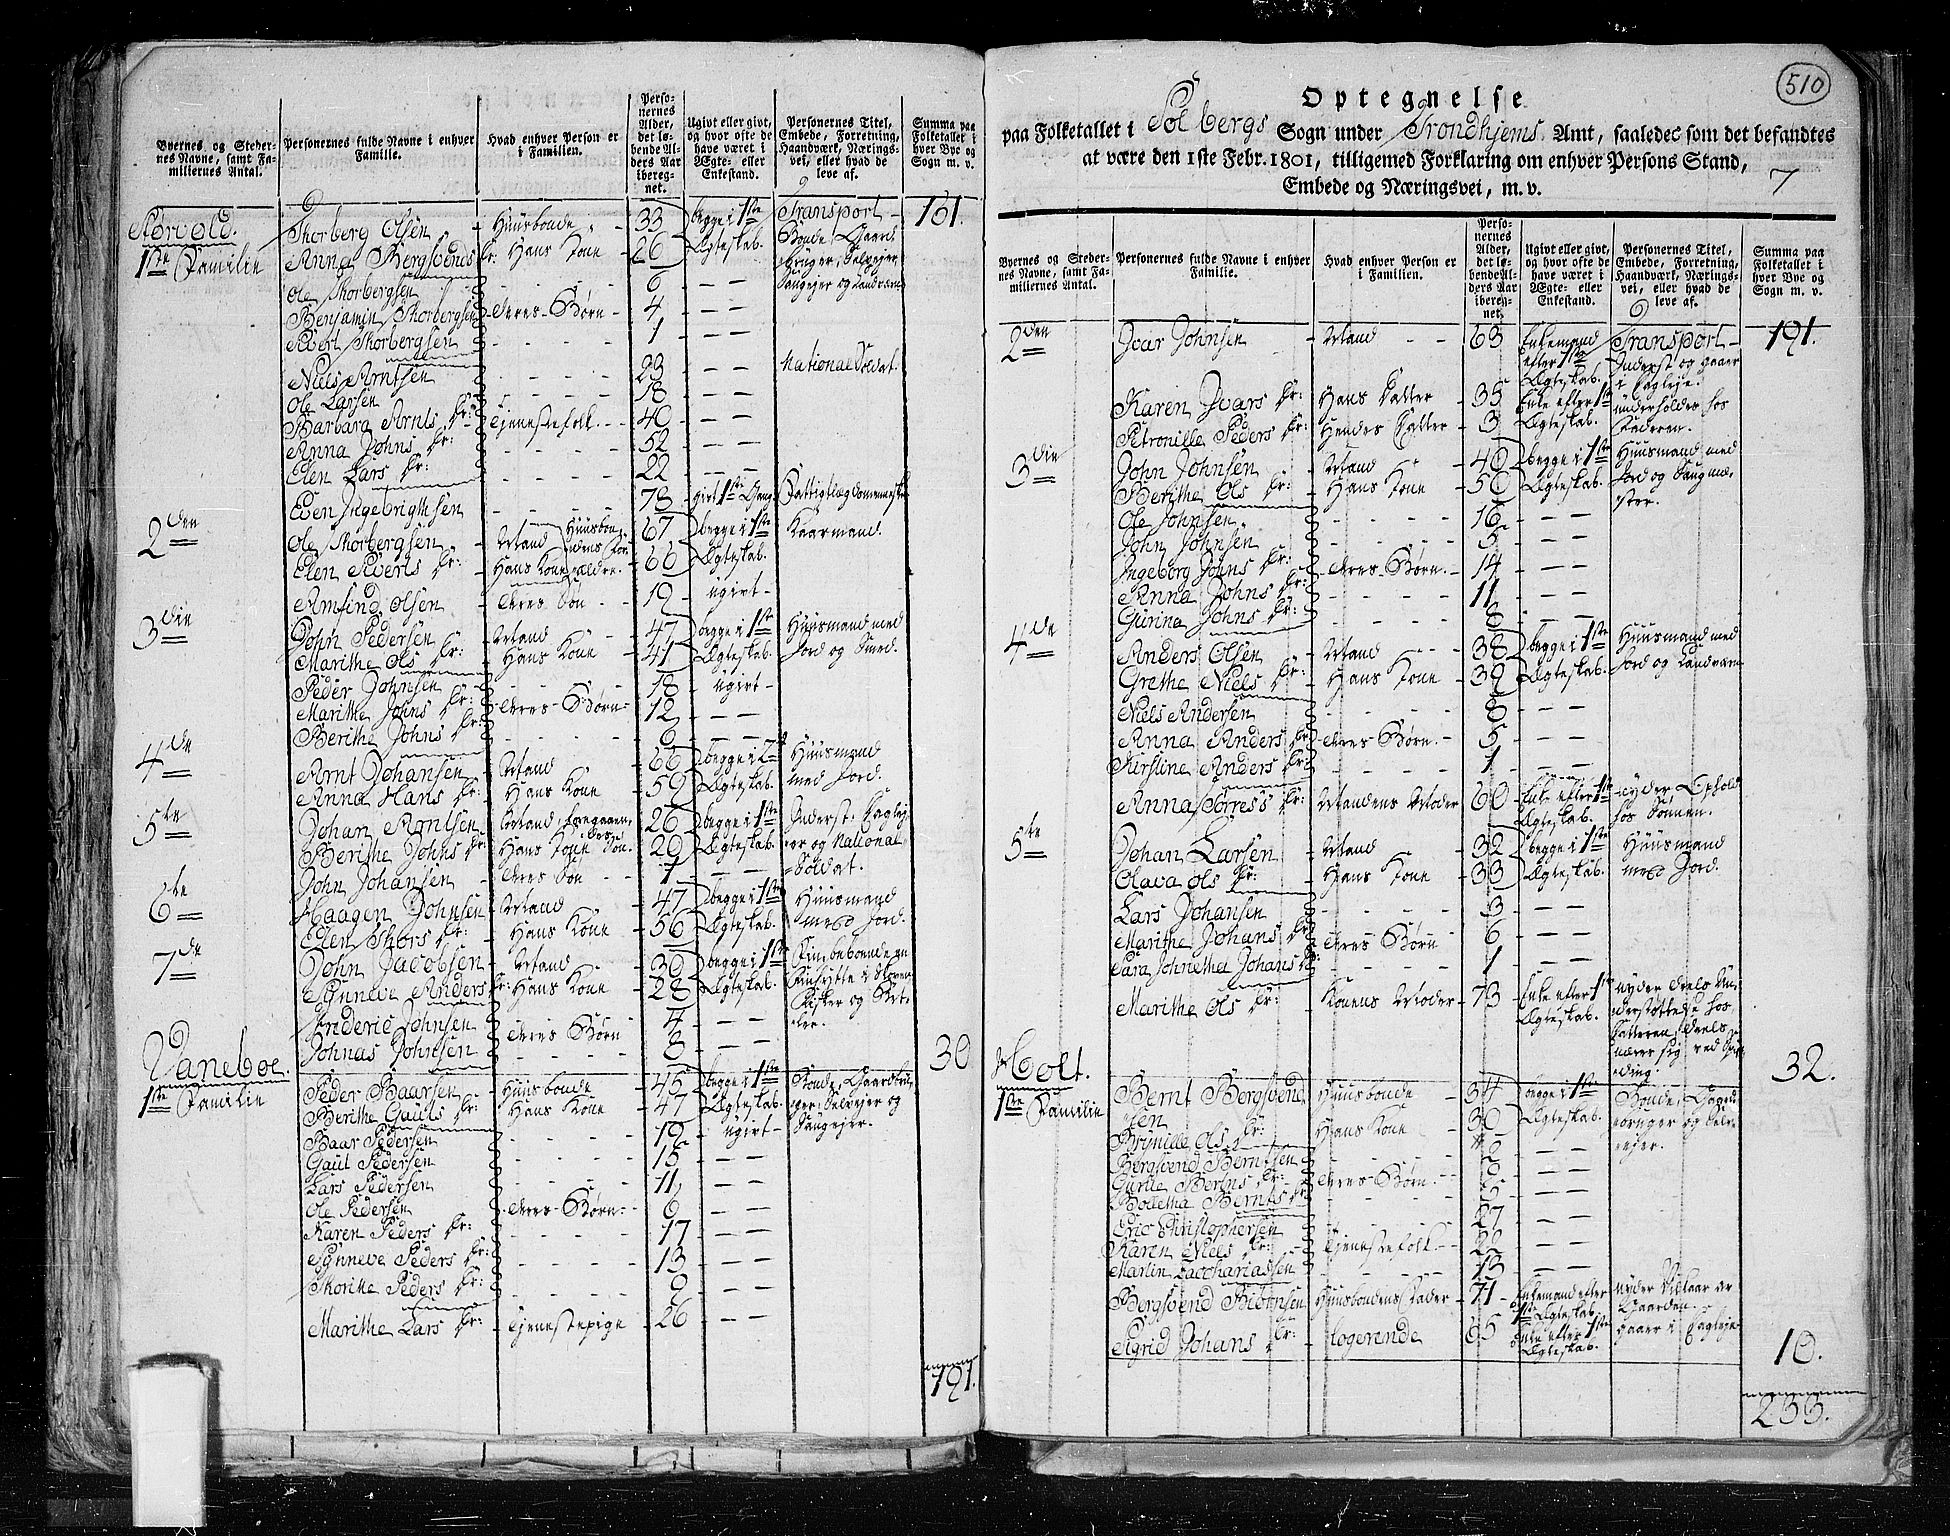 Byernes og Stedernes Navne, samt Familiernes Antal.
Personernes fulde Navne i enhver Familie.
Hvad enhver Person er i Familien.
Personernes Alder, det løbende Alders Aar iberegnet.
Ugivt eller givt, og hvor ofte de have været i Ægte- eller Enkestand.
Personernes Titel, Embede, Forretning, Haandværk, Næringsvei, eller hvad de leve af.
Summa paa Folketallet i hver Bye og Sogn m. v.
Transport 161.
Størvold.
1ste Familie
Thorberg Olsen - Huusbonde - 33 begge i 1ste Bonde, Gaard
Anna Bergsvends Dr: Hans Kone 26 Ægteskab. bruger, Selvejer
Ole Thorbergsen 6 - - Saugejer og Landværn
Benjamin Thorbergsen - deres Børn - 4 - -
Sivert Thorbergsen - - - 1 - -
Niels Arntsen - - - 23 - - National Soldat.
Ole Larsen - - - 18 - -
Barbara Arnts Dr: Tjenestefolk - - 40 - -
Anna Johns Dr: - - - 52 - -
Elen Lars Dr: - - - 22 - -
Even Ingebrigthsen - - - 78 - givt 1ste Gang
2den
Ole Thorbergsen - Mand Huusbon- 67 begge i 1ste Kaarmand.
Elen Siverts Dr: Hans Kone 66 Ægteskab.
Amfind Olsen - deres Søn - - 19 - ugivt -
3die
John Pedersen - Mand - 47 begge i 1ste Huusmand med
Marithe Ols Dr: Hans Kone - 41 Ægteskab. Jord og Smed.
Peder Johnsen - - - 18 - ugivt -
Marithe Johns Dr: deres Børn - 12 - -
Berithe Johns Dr: - - - 6 - -
4de
Arnt Johansen - Mand - 66 begge i 2 Huusmand
Anna Hans Dr: Hans Kone - 59 Ægteskab. med Jord.
5te
Johan Arntsen Mand, 26 begge i 1ste Inderst,
Berithe Johns Dr: Hans Kone 20 Ægteskab. og National
John Johansen - deres Søn - 1 - - Soldat.
6te
Haagen Johnsen - Mand - 47 begge i 1ste Huusmand
Elen Thors Dr: Hans Kone - 56 Ægteskab. med Jord.
7de
John Jacobsen - Mand - 30 begge i 1ste
Synneve Anders Dr: Hans Kone - 28 Ægteskab.
Frideric Johnsen - deres Børn 4 - -
Johnas Johnsen - - - 8 - - 30
Vaneboe.
1ste Familie
Peder Baarsen - Huusbonde - 45 begge i 1ste Bonde, Gaardbru
Berithe Gauls Dr: Hans Kone - 47 Ægteskab. ger, Selvejer og
Baar Pedersen - - - 19 - ugivt - Saugejer.
Gaul Pedersen - - - 15 - -
Lars Pedersen - - - 11 - -
Ole Pedersen - deres Børn - 6 - -
Karen Peders Dr: - - - 17 - -
Synneve Peders Dr: - - - 13 - -
Thorithe Peders Dr: - - - 9 - -
Marithe Lars Dr: - Tjenestepige - 26 - -
191.
510
Optegnelse
paa Folketallet i Solbergs Sogn under Trondhjems Amt, saaledes som det befandtes
at være den 1ste Febr. 1801, tilligemed Forklaring om enhver Persons Stand,
Embede og Næringsvei, m. v.
7
Byernes og Stedernes Navne, samt Familiernes Antal.
Personernes fulde Navne i enhver Familie.
Hvad enhver Person er i Familien.
Personernes Alder, det løbende Alders Aar iberegnet.
Ugivt eller givt, og hvor ofte de have været i Ægte- eller Enkestand.
Personernes Titel, Embede, Forretning, Haandværk, Næringsvei, eller hvad de leve af.
Summa paa Folketallet i hver Bye og Sogn m. v.
Transport - 191.
2den
Ivar Johnsen - Mand - - 63 Enkemand efter 1ste Ægteskab. Inderst og gaaer i Dagleje.
Karen Ivars Dr: Hans Datter - 35 Enke efter 1ste underholdes hos
Petronille Peders Dr: Hendes Datter - 3 Ægteskab. Faderen.
3die
John Johnsen - Mand - 40 begge i 1ste Huusmand med
Berithe Ols Dr: Hans Kone - 50 Ægteskab. Jord og Saugmester.
Ole Johnsen - - - 16 - -
John Johnsen - - - 5 - -
Ingeborg Johns Dr: deres Børn - 14 - -
Anna Johns Dr: - - - 11 - -
Gurina Johns Dr: - - - 8 - -
4de
Anders Olsen - Mand - - 38 begge i 1ste Huusmand med
Grethe Niels Dr: Hans Kone - 39 Ægteskab. Jord og Landværn
Niels Andersen - - - 8 - -
Anna Anders Dr: deres Børn - 5 - -
Kirstine Anders Dr: - - - 1 - -
Anna Torres's Dr: Mandens Moder 60 Enke efter 1ste Ægteskab. nyder Ophold hos Sønnen.
5te
Johan Larsen - Mand - - 32 begge i 1ste Huusmand
Olava Ols Dr: Hans Kone - 33 Ægteskab. med Jord.
Lars Johansen - - - 3 - -
Marithe Johans Dr: deres Børn 6 - -
Sara Johnetha Johans Dr: - - 1 - -
Marithe Ols Dr: Konens Moder - 73 Enke efter 1ste Ægteskab. nyder deels Understøttelse hos Datteren, deels nærer sig ved Spinding. 32.
Holt.
1ste Familie
Bernt Bergsvendsen Huusbonde - 34 begge i 1ste Bonde,
Brynille Ols Dr: Hans Kone - 30 Ægteskab. og Selvejer.
Bergsvend Berntsen - - - 2 - -
Gurue Bernts Dr: deres Børn - 9 - -
Bolletha Bernts Dr: - - - 5 - -
Eric Christophersen - - - 27 - -
Karen Niels Dr: Tjenestefolk - 22 - -
Martin Zacchariassen - - - 13 - -
Bergsvend Biörnsen Huusbondens Fader - 71 - Enkemand efter 1ste Ægteskab. nyder Vilkaar av Gaarden.
Sigrid Johans Dr: - logerende - 65 Enke efter 1ste Ægteskab. gaaer i Dagleje 10.
233.